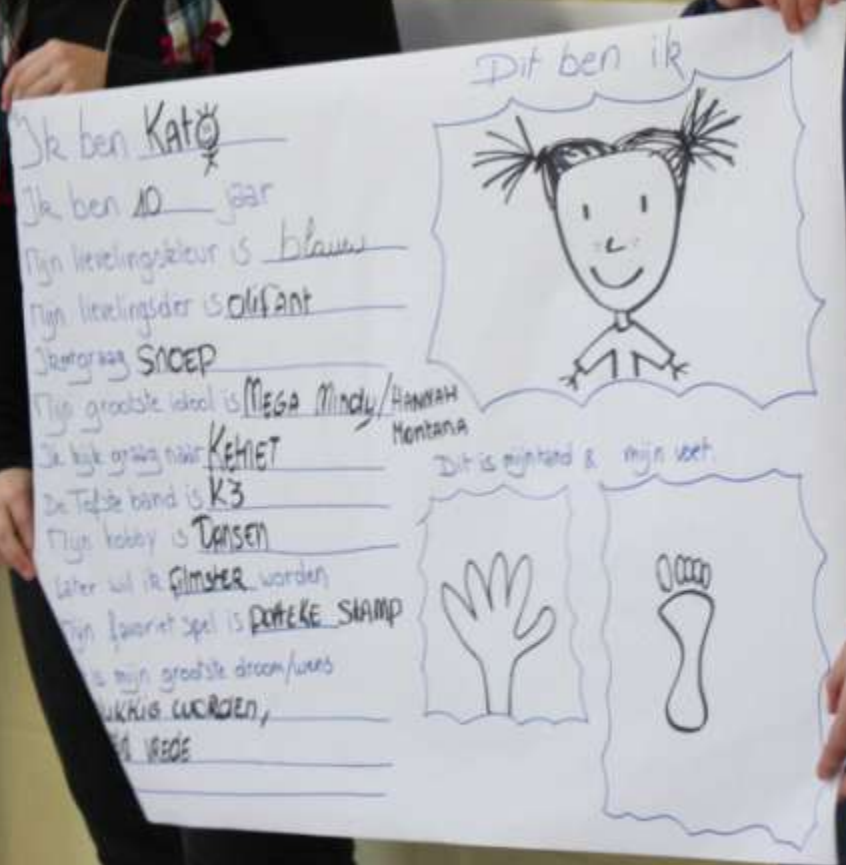 Dit ben ik
Ik ben Kato
Ik ben 10 jaar
Mijn lievelingskleur is blauw
Mijn lievelingsdier is olifant
Ik eet graag SNOEP
Mijn grootste idool is MEGA Mindy/HANNAH
Montana
Ik kijk graag naar KETNET
De Tofste band is K3
Mijn hobby is DANSEN
Later wil ik filmster worden
Mijn favoriet spel is POTTEKE STAMP
is mijn grootste droom/wens
UKKIG WORDEN,
VREDE
Dit is mijn hand & mijn voet.